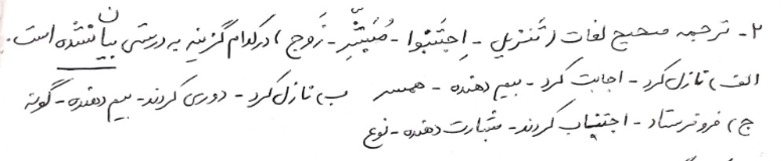 ۲- ترجمه صحیح لغات (تَنزیل - اِجتَنَبُوا - مُبَشِّر - زَوج) در کدام گزینه به درستی بیان نشده است.
الف) نازل کرد - اجابت کرد - بیم دهنده - همسر ب) نازل کرد - دوری کردند - بیم دهنده - گونه
ج) فرو فرستاد - اجتناب کردند - بشارت دهنده - نوع